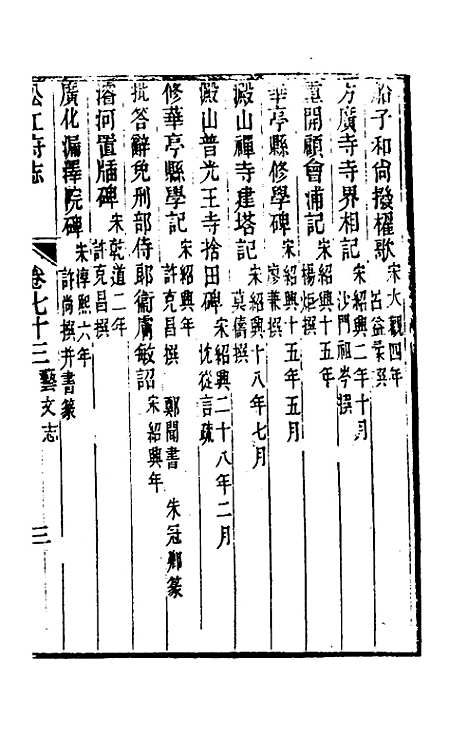 船子和尚撥櫂歌 宋大觀四年 呂益柔撰
方廣寺寺界相記 宋紹興二年十月 沙門祖岑撰
重開顧會浦記 宋紹興十五年 楊炬撰
華亭縣修學碑 宋紹興十五年五月 廖兼撰
澱山禪寺建塔記 宋紹興十八年七月 莫儔撰
澱山普光王寺捨田碑 宋紹興二十八年二月 沈從言疏
修華亭縣學記 宋紹興年 許克昌撰 鄭聞書 朱冠卿篆
批答辭免刑部侍郎衛膚敏詔 宋紹興年
濬河置牐碑 宋乾道二年 許克昌撰
廣化漏澤院碑 宋淳熙六年 許尚撰并書篆
松江府志 卷七十三 藝文志 三